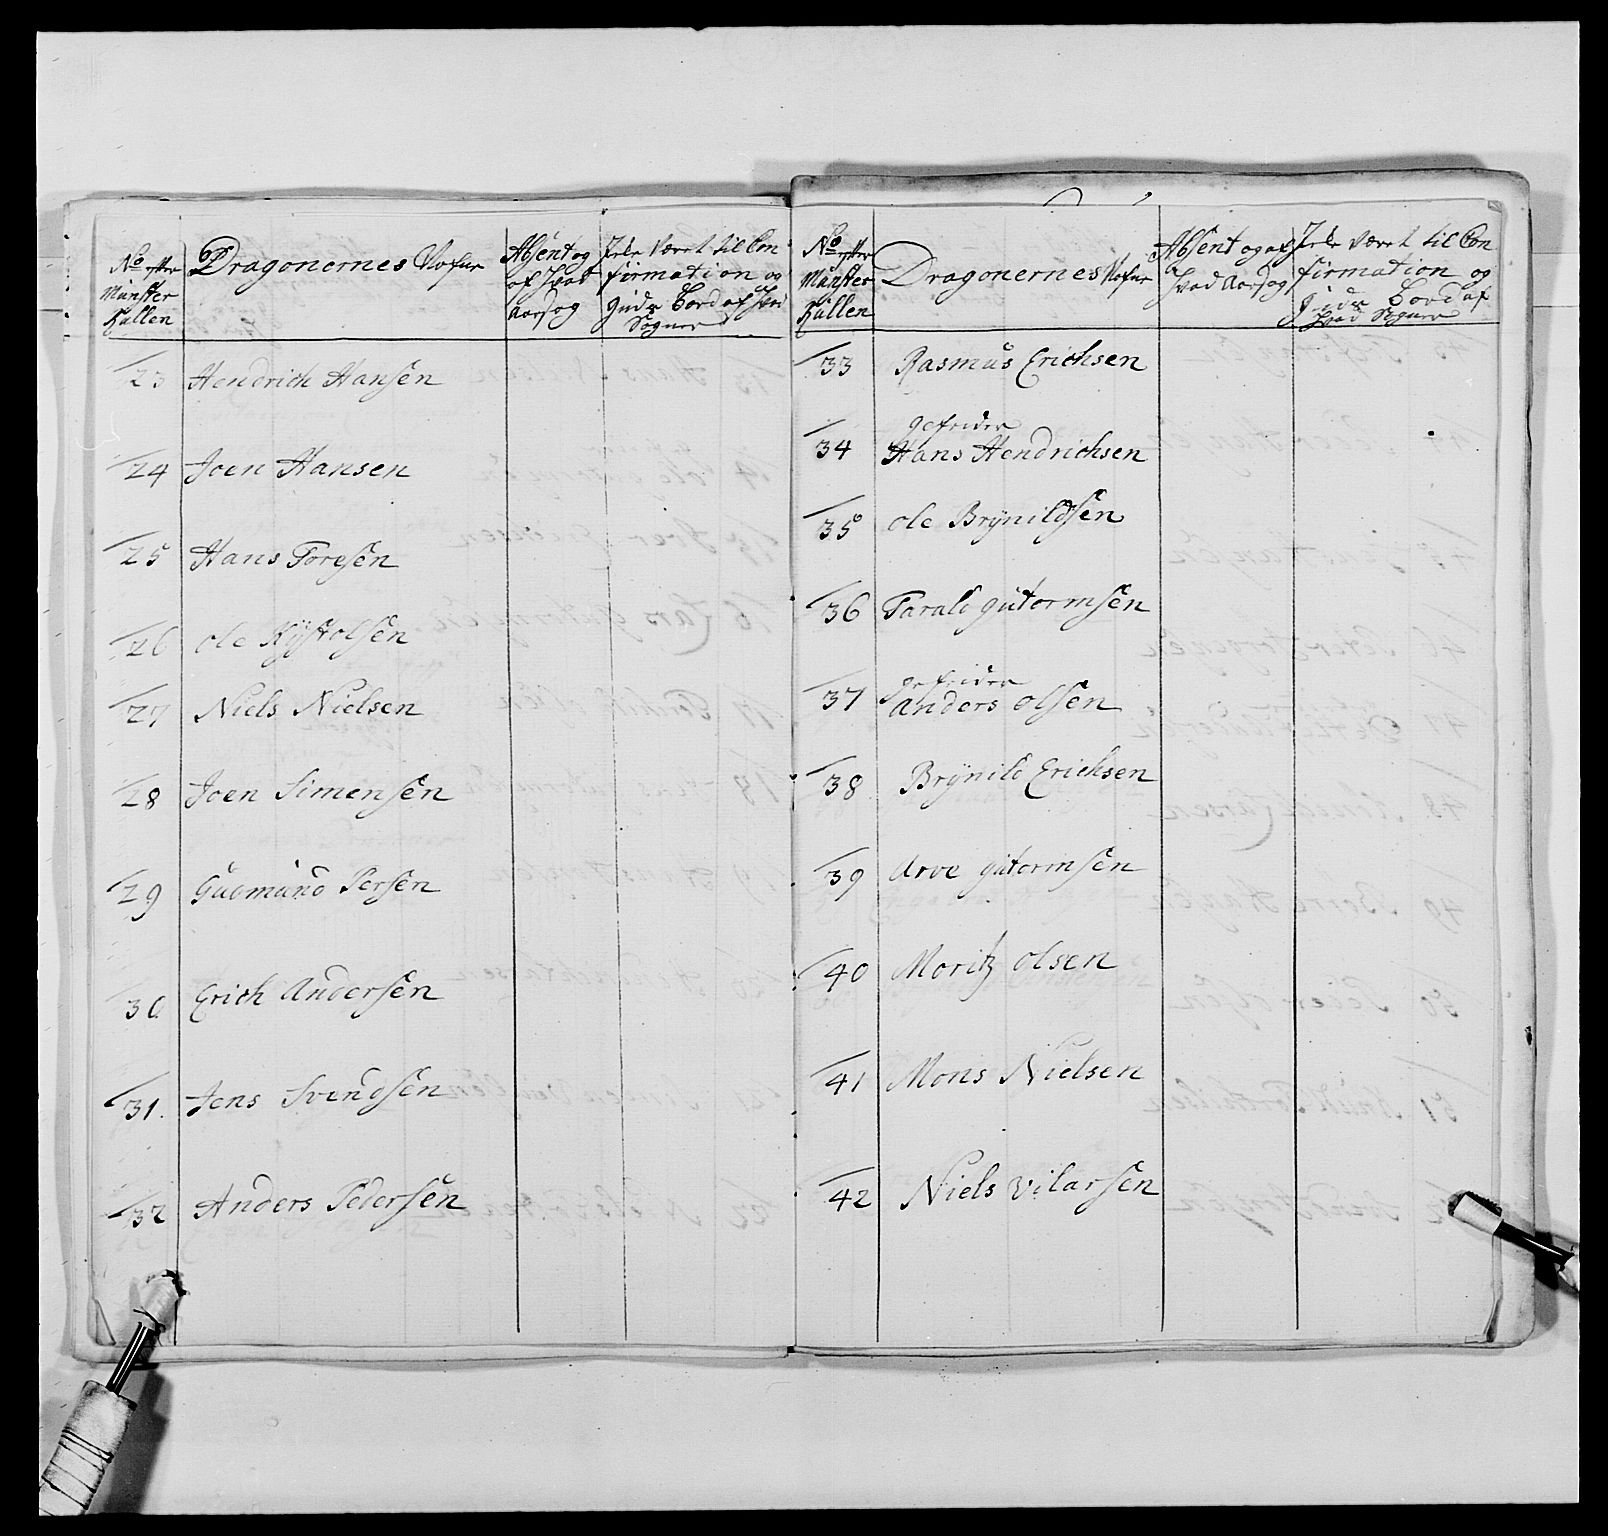 No efter
Münster
Rullen
Dragonernes Nafne
Absent og
af hvad
Aarsag
Icke Været til Con
firmation og
Guds Bord af hvad
Sogner
23 Hendrich Hansen
24 Joen Hansen
25 Hans Toresen
26 Ole Kystolsen
27 Niels Nielsen
28 Joen Simensen
29 Gudmund Persen
30 Erich Andersen
31. Jens Svendsen
32 Anders Pedersen
No efter
Münster
Rullen
Dragonernes Nafne
Absent og af
hvad Aarsag
Icke Været til Con
firmation og
Guds Bord af
hvad Sogner
33 Rasmus Erichsen
gefrider
34 Hans Hendrichsen
35 Ole Brÿnildsen
36 Tarald Gutormsen
gefrider
37 Anders Olsen
38 Brÿnild Erichsen
39 Arve Gutormsen
40 Moritz Olsen
41 Mons Nielsen
42 Niels Vilarsen